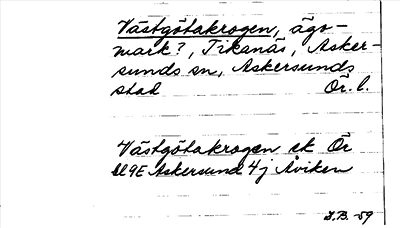 Västgötakrogen, ägo-
mark?, Tikanäs, Asker-
sunds sn, Askersunds
stad Ör. l.
Västgötakrogen ek Ör
9E Askersund 4j Åviken
J.B. -59